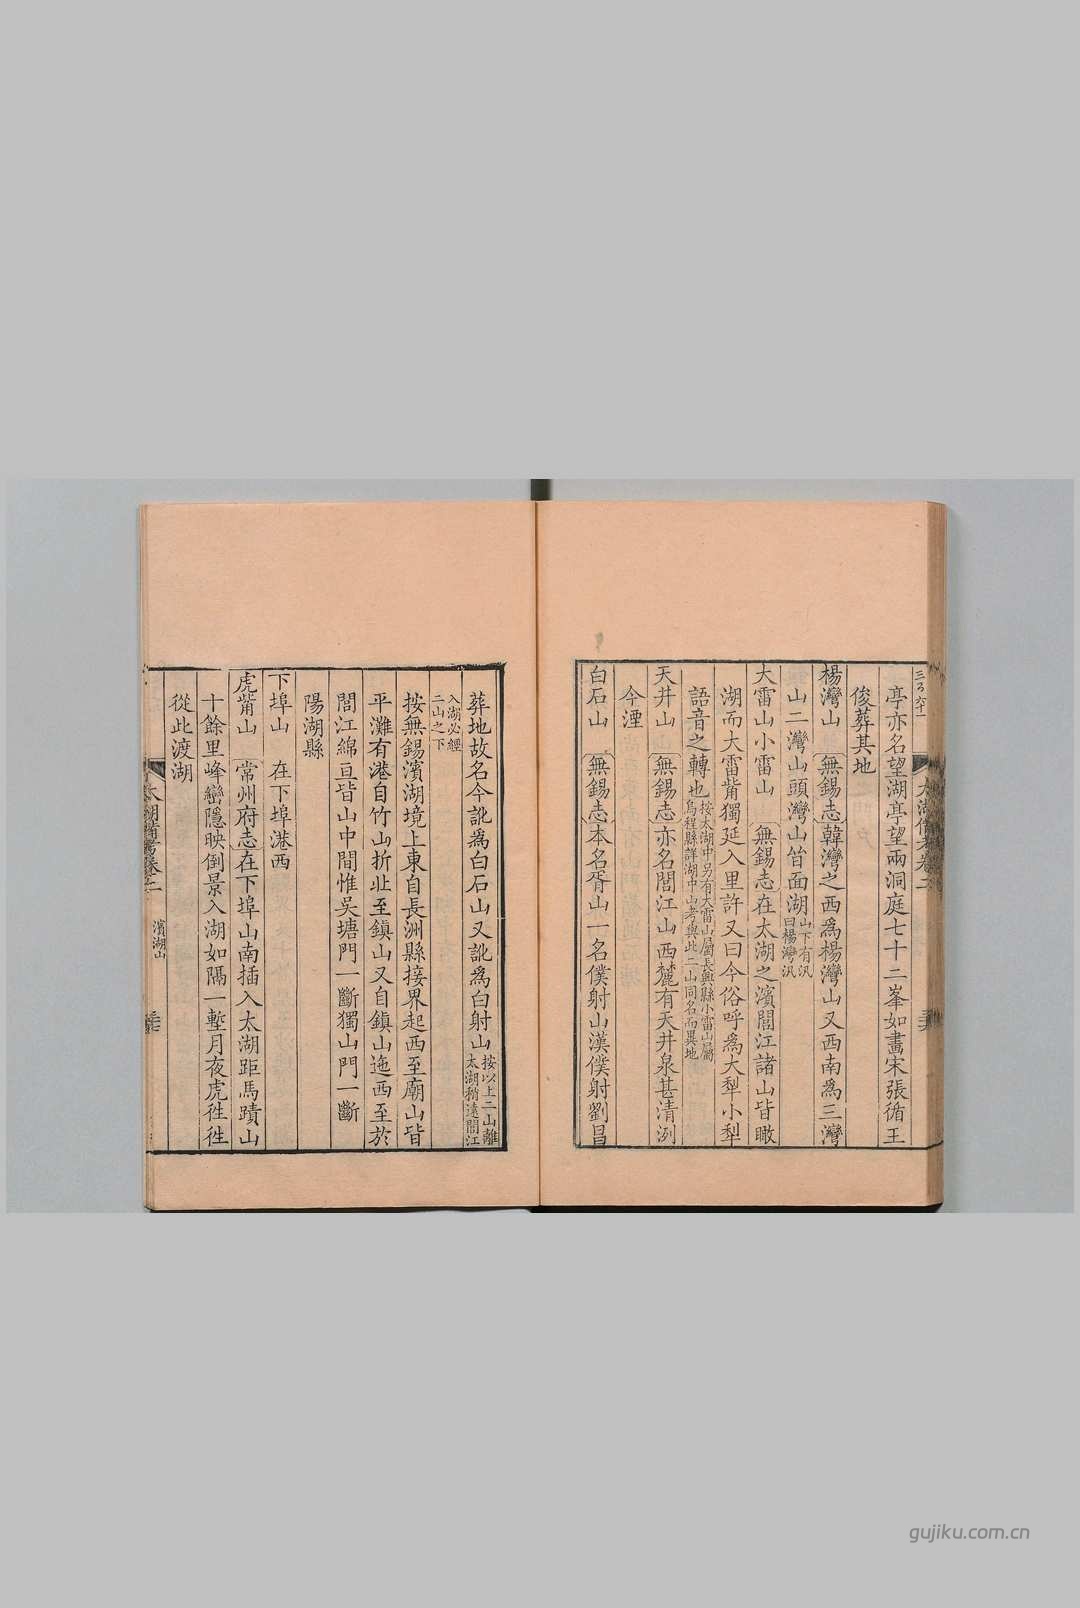 亭亦名望湖亭望兩洞庭七十二峯如畫宋張循王
俊葬其地
楊灣山 無錫志韓灣之西為楊灣山又西南為三灣
山二灣山頭灣山皆面湖山下有汎曰楊灣汎
大雷山小雷山 無錫志在太湖之濱閭江諸山皆瞰
湖而大雷觜獨延入里許又曰今俗呼為大犁小犁
語音之轉也按太湖中另有大雷山屬長興縣小雷山屬烏程縣詳湖中山考與此二山同名而異地
天井山 無錫志亦名閭江山西麓有天井泉甚清冽
今湮
白石山 無錫志本名胥山一名僕射山漢僕射劉昌
葬地故名今訛為白石山又訛為白射山按以上二山離太湖稍遠閭江
入湖必經二山之下
按無錫濱湖境上東自長洲縣接界起西至廟山皆
平灘有港自竹山折北至鎮山又自鎮山迤西至於
閭江綿亘皆山中間惟吳塘門一斷獨山門一斷
陽湖縣
下埠山 在下埠港西
虎觜山 常州府志在下埠山南插入太湖距馬蹟山
十餘里峰巒隱映倒景入湖如隔一塹月夜虎往往
從此渡湖
太湖備考卷二 濱湖山
gujiku.com.cn